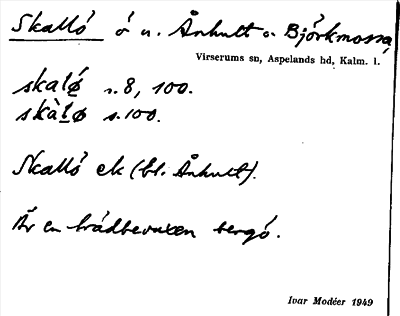 Skallö ö u. Ånhult o Björkmossa
Virserums sn, Aspelands hd, Kalm. l.
skalǿ s. 8, 100.
skàlø s. 100.
Skallö ek (bl. Ånhult).
Är en trädbevuxen bergö.
Ivar Modéer 1949